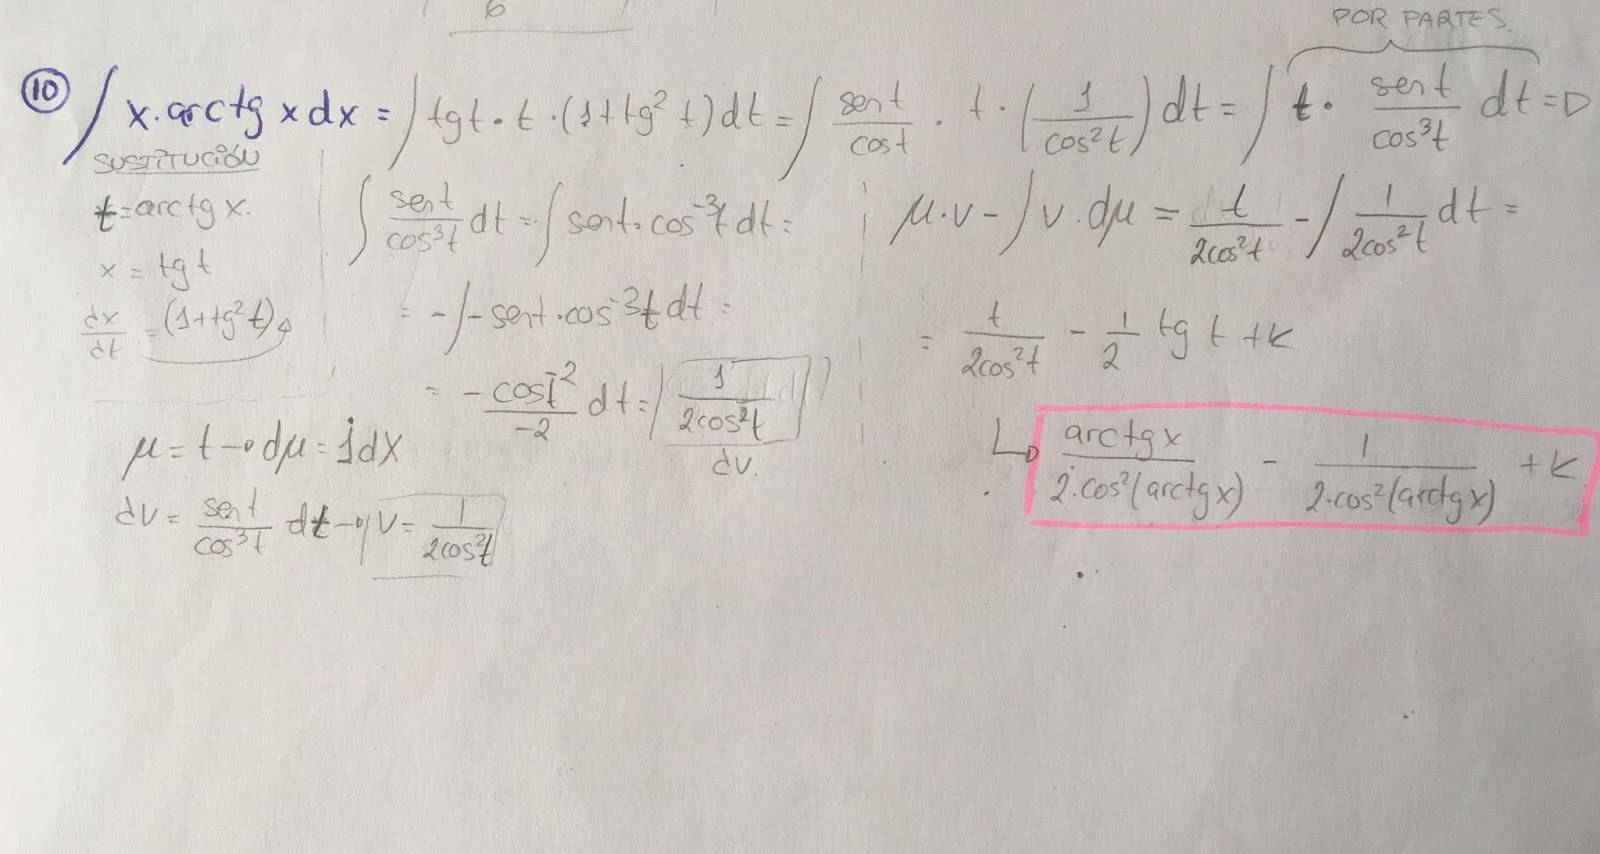 6
POR PARTES.
⑩ ∫ x·arctg x dx = ∫ tg t · t · (1+tg² t) dt = ∫ sent/cost · t · (1/cos²t) dt = ∫ t · sent/cos³t dt =D
SUSTITUCIÓN
t = arctg x.
x = tg t
dx/dt = (1+tg² t)
∫ sent/cos³t dt = ∫ sent · cos⁻³t dt =
= -∫ -sent · cos⁻³t dt =
= -cost⁻²/-2 dt = 1/2cos²t
dv.
μ = t → dμ = 1dx
dv = sent/cos³t dt → v = 1/2cos²t
μ·v - ∫ v·dμ = t/2cos²t - ∫ 1/2cos²t dt =
= t/2cos²t - 1/2 tg t + K
↳ arctg x/2·cos²(arctg x) - 1/2·cos²(arctg x) + K